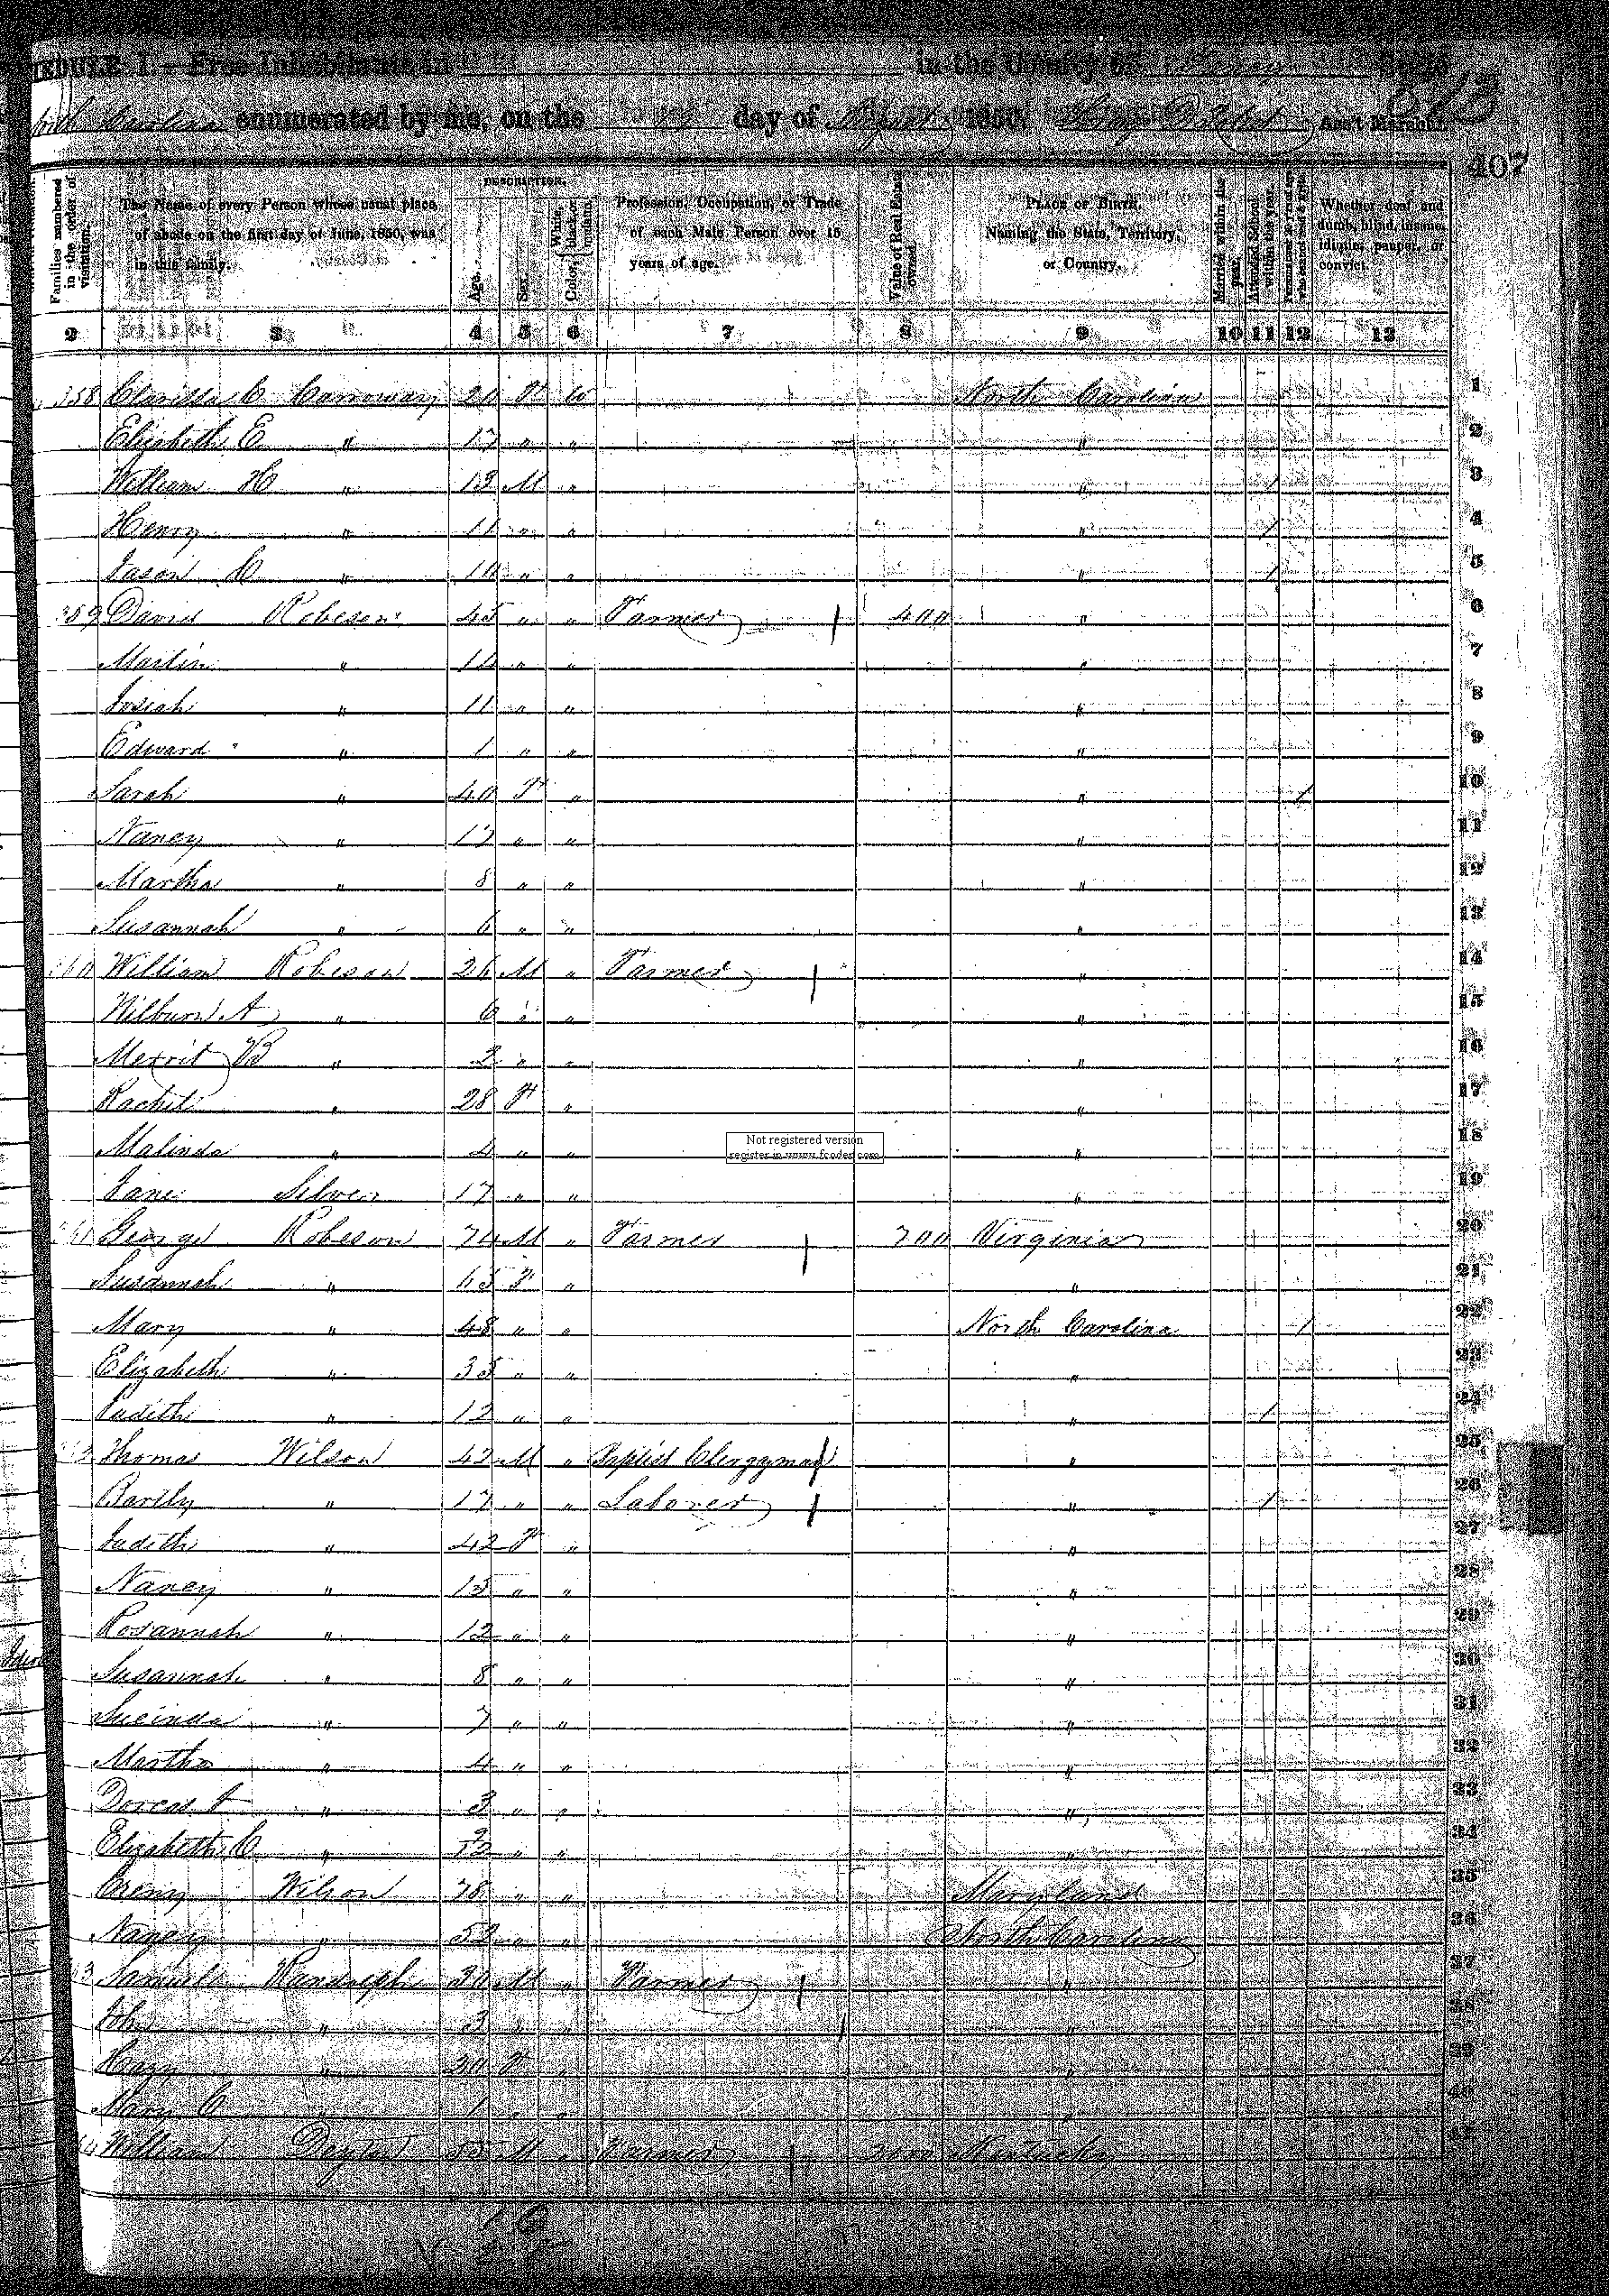 SCHEDULE I.—Free Inhabitants in in the County of Yancey State
North Carolina enumerated by me, on the day of August 1850. Ass't Marshal.
407
Families numbered in the order of visitation.
The Name of every Person whose usual place of abode on the first day of June, 1850, was in this family.
DESCRIPTION.
Age.
Sex.
Color, { White, black, or mulatto.
Profession, Occupation, or Trade of each Male Person over 15 years of age.
Value of Real Estate owned
PLACE OF BIRTH, Naming the State, Territory, or Country.
Married within the year.
Attended School within the year.
Persons over 20 y'rs of age who cannot read & write.
Whether deaf and dumb, blind, insane, idiotic, pauper, or convict.
2 3 4 5 6 7 8 9 10 11 12 13
358 Clarissa C Carroway 20 F W North Carolina 1
Elizabeth E " 17 " " " 2
William H " 13 M " " 1 3
Henry " 11 " " " 1 4
Jason C " 10 " " " 1 5
359 David Robeson 45 " " Farmer 400 " 6
Martin " 14 " " " 7
Josiah " 11 " " " 8
Edward " 1 " " " 9
Sarah " 40 F " " 1 10
Nancy " 17 " " " 11
Martha " 8 " " " 12
Susannah " 6 " " " 13
360 William Robeson 26 M " Farmer " 14
Wilburn A " 6 " " " 15
Merrit B " 2 " " " 16
Rachel " 28 F " " 17
Malinda " 4 " " " 18
Jane Silver 17 " " " 19
361 George Robeson 74 M " Farmer 700 Virginia 20
Susannah " 65 F " " 21
Mary " 48 " " North Carolina 1 22
Elizabeth " 35 " " " 23
Judith " 12 " " " 1 24
362 Thomas Wilson 42 M " Baptist Clergyman " 25
Bartly " 17 " " Laborer " 1 26
Judith " 42 F " " 27
Nancy " 15 " " " 28
Rosannah " 12 " " " 29
Susannah " 8 " " " 30
Lucinda " 7 " " " 31
Martha " 4 " " " 32
Dorcas A " 3 " " " 33
Elizabeth C " 9/12 " " " 34
Wilson 78 " " Maryland 35
Nancy " 52 " " North Carolina 36
363 Samuel Randolph 30 M " Farmer " 37
John " 3 " " " 38
" 20 F " " 39
Mary " 1 " " " 40
364 William 55 M " Farmer Kentucky
Not registered version
register in www.fcoder.com